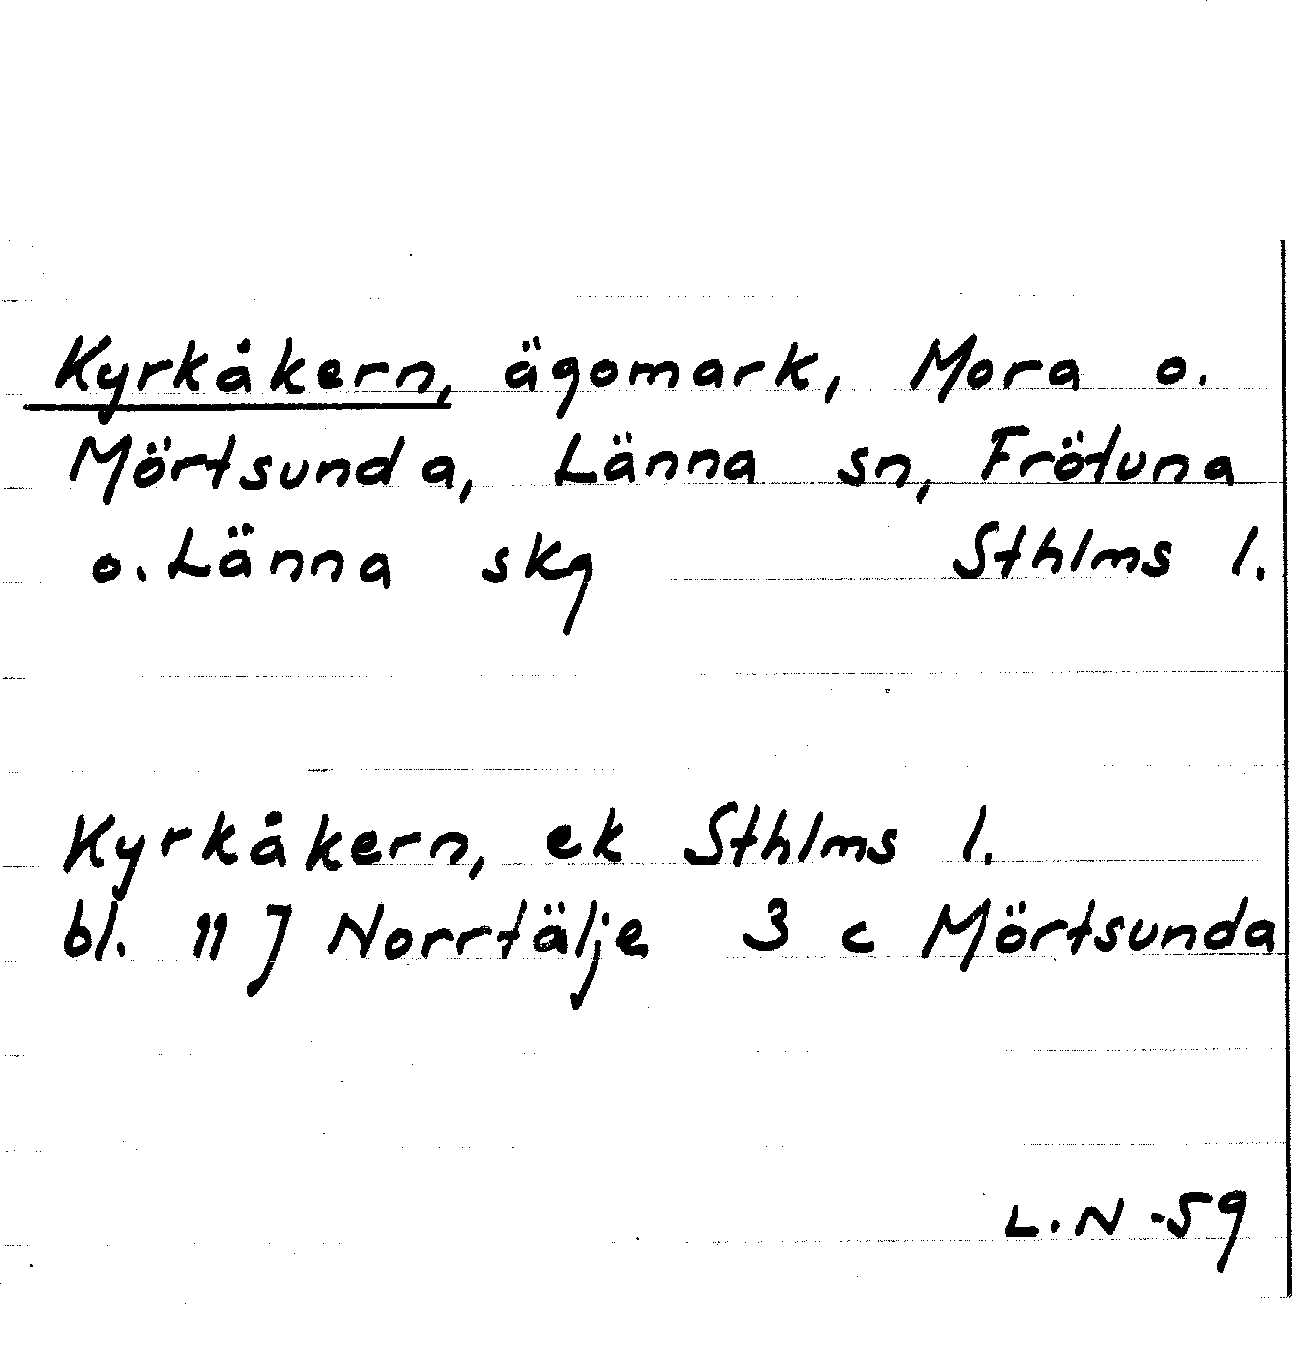 Kyrkåkern, ägomark, Mora o.
Mörtsunda, Länna sn, Frötuna
o. Länna skg Sthlms l.
Kyrkåkern, ek Sthlms l.
bl. 11 J Norrtälje 3 c Mörtsunda
L.N -59